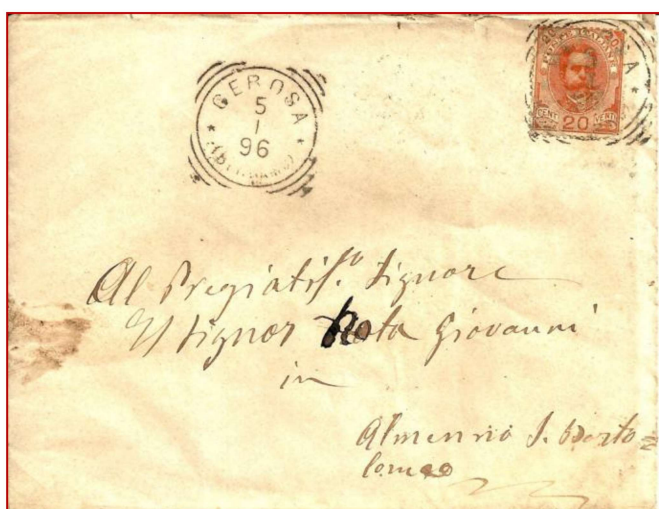 GEROSA
5
1
96
(BERGAMO)
POSTE ITALIANE
CENT 20 CENT
Al Pregiatis.º Signore
Il Signor Rota Giovanni
in
Almenno S. Barto
lomeo